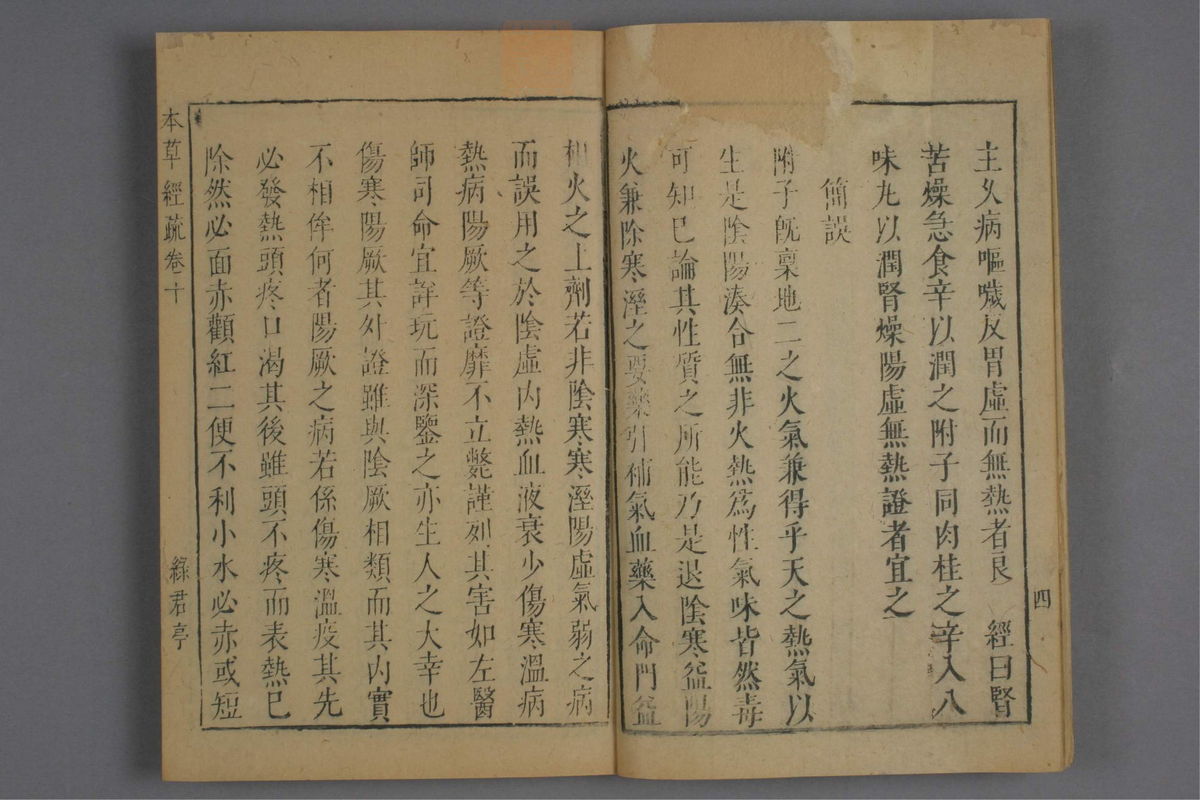 主久病嘔噦反胃虛而無熱者良 經曰腎
苦燥急食辛以潤之附子同肉桂之辛入八
味丸以潤腎燥陽虛無熱證者宜之
簡誤
附子旣稟地二之火氣兼得乎天之熱氣以
生是陰陽湊合無非火熱爲性氣味皆然毒
可知已論其性質之所能乃是退陰寒益陽
火兼除寒溼之要藥引補氣血藥入命門益
四
相火之上劑若非陰寒寒溼陽虛氣弱之病
而誤用之於陰虛內熱血液衰少傷寒溫病
熱病陽厥等證靡不立斃謹列其害如左醫
師司命宜詳玩而深鑒之亦生人之大幸也
傷寒陽厥其外證雖與陰厥相類而其內實
不相侔何者陽厥之病若係傷寒溫疫其先
必發熱頭疼口渴其後雖頭不疼而表熱已
除然必面赤顴紅二便不利小水必赤或短
本草經疏卷十
綠君亭